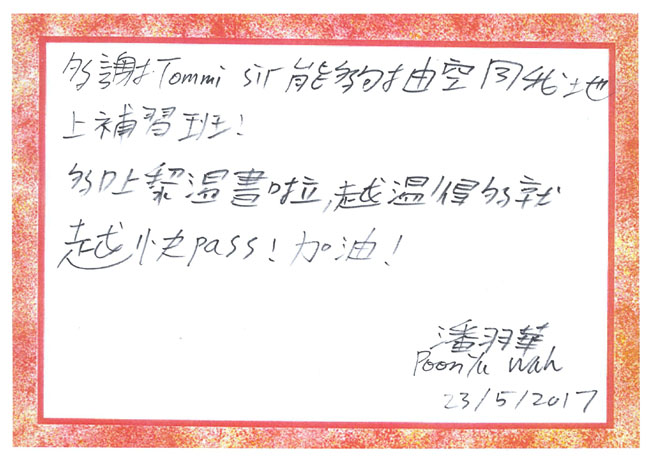 多謝Tommi sir能夠抽空同我地
上補習班!
多D上黎溫書啦,越溫得多就
越快pass!加油!
潘羽華
Poon Yu Wah
23/5/2017